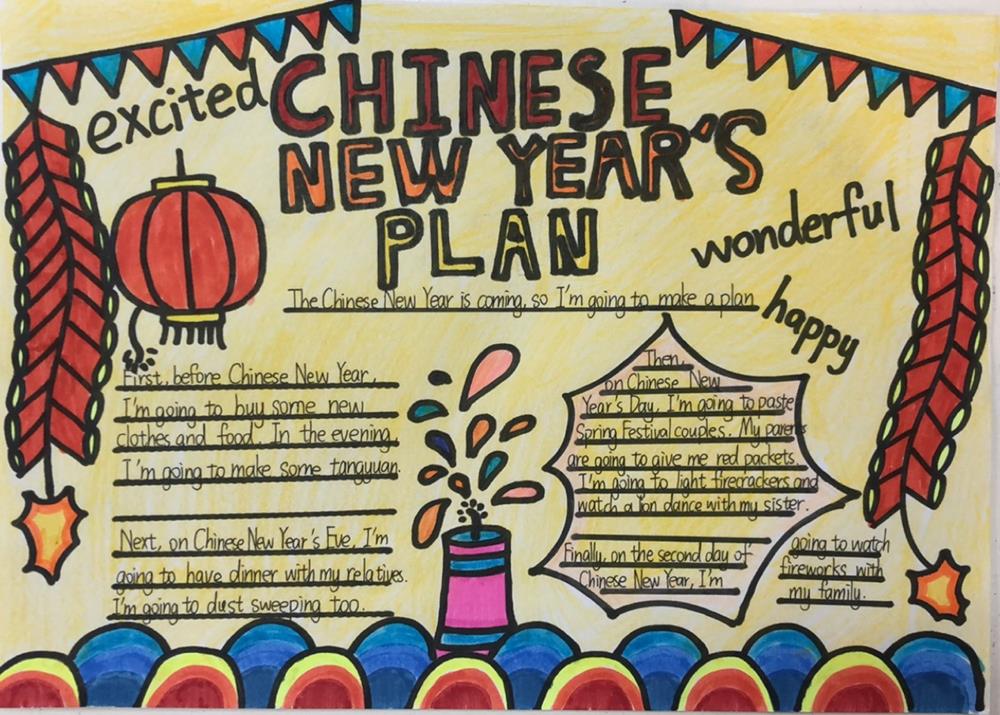 excited
CHINESE
NEW YEAR'S
PLAN
wonderful
happy
The Chinese New Year is coming, so I'm going to make a plan
First, before Chinese New Year,
I'm going to buy some new
clothes and food. In the evening,
I'm going to make some tangyuan.
Next, on Chinese New Year's Eve, I'm
going to have dinner with my relatives.
I'm going to dust sweeping too.
Then,
on Chinese New
Year's Day, I'm going to paste
Spring Festival couples. My parents
are going to give me red packets.
I'm going to light firecrackers and
watch a lion dance with my sister.
Finally, on the second day of
Chinese New Year, I'm
going to watch
fireworks with
my family.